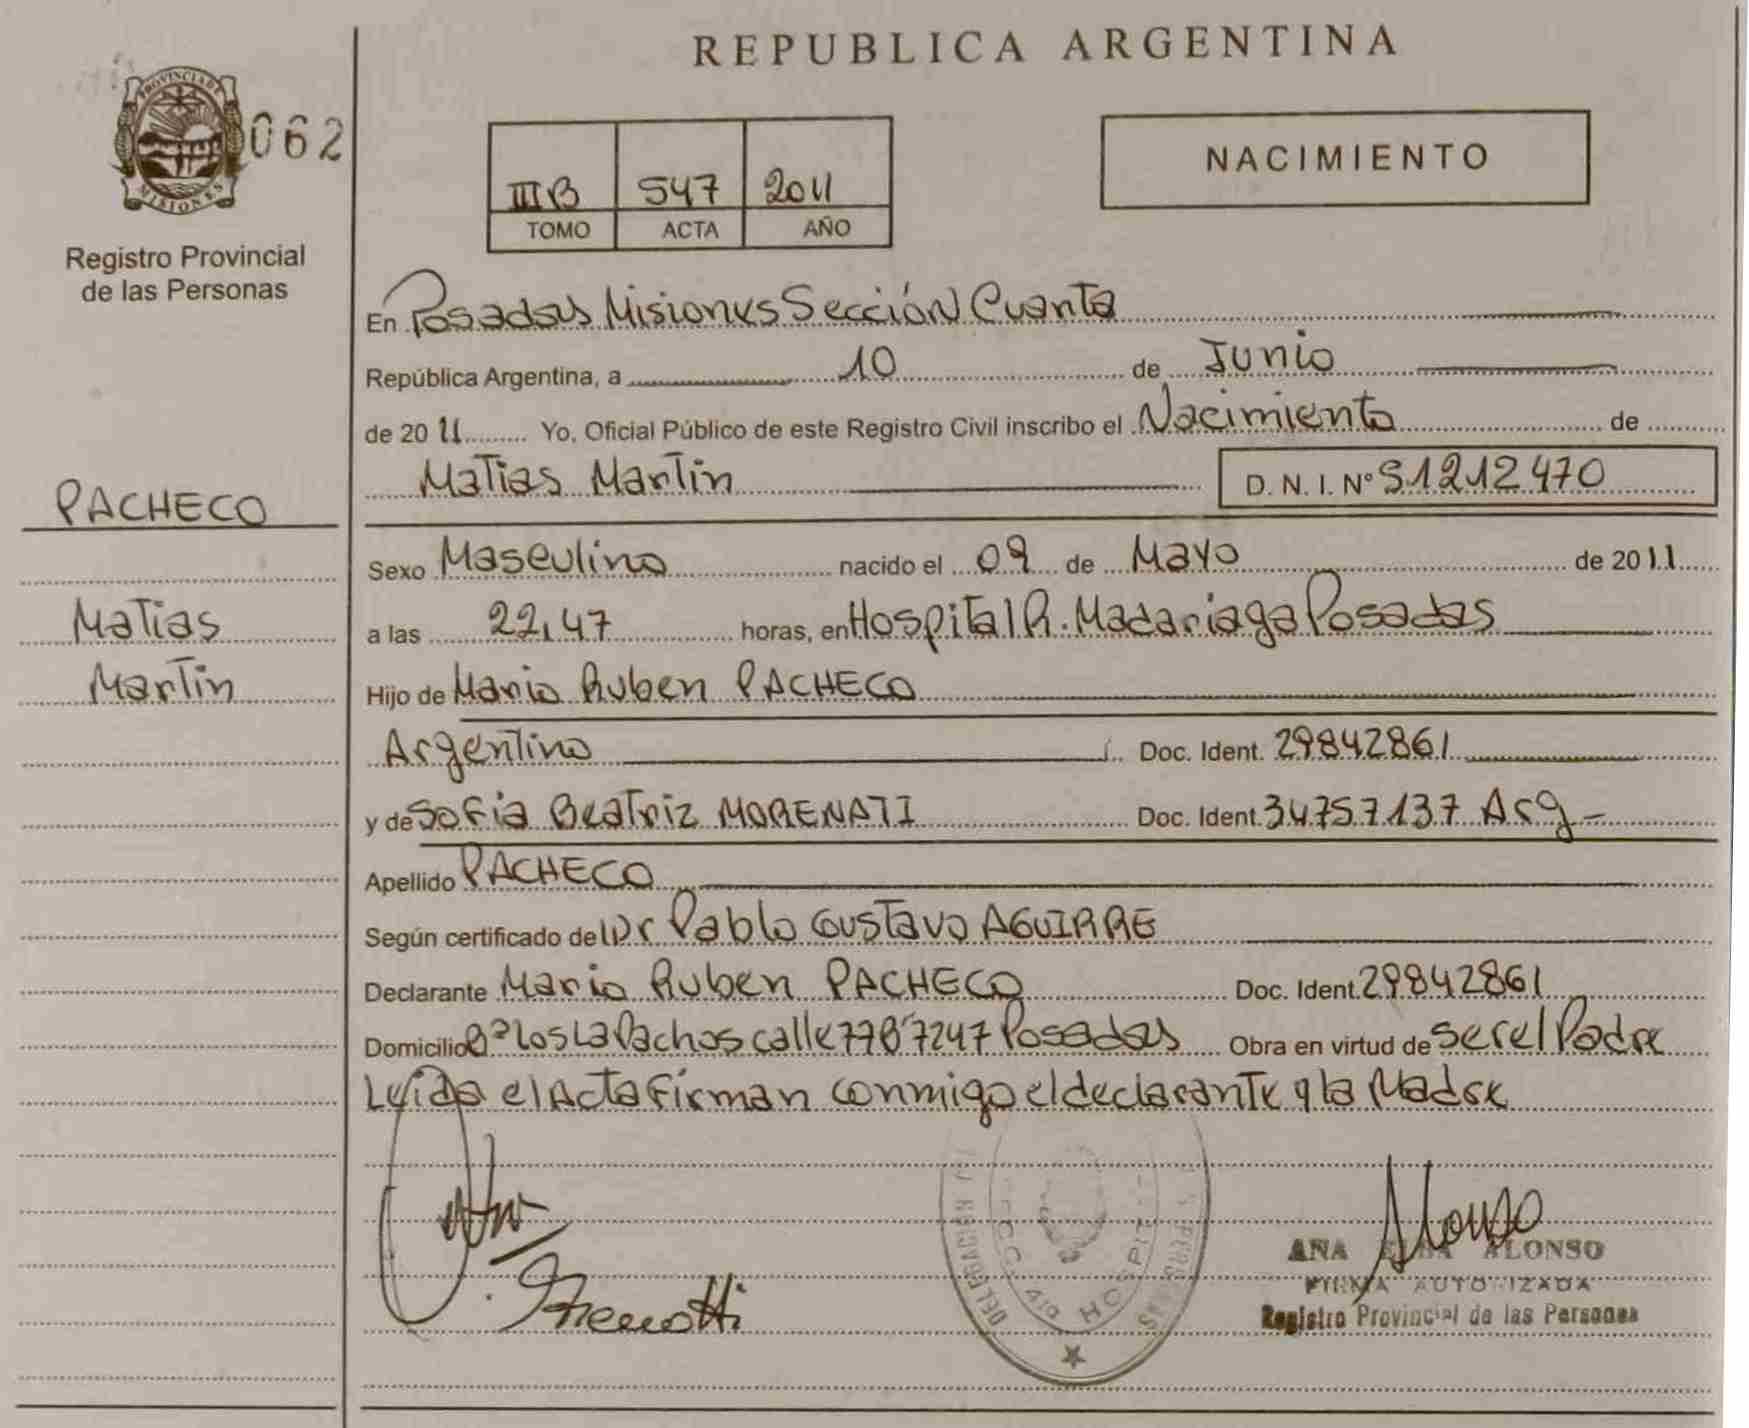 REPUBLICA ARGENTINA
PROVINCIA DE
MISIONES
062
Registro Provincial
de las Personas
III B 547 2011
TOMO ACTA AÑO
NACIMIENTO
En Posadas Misiones Sección Cuarta
República Argentina, a 10 de Junio
de 20 11 Yo, Oficial Público de este Registro Civil inscribo el Nacimiento de
Matias Martin D. N. I. Nº 51212470
PACHECO
Matias
Martin
Sexo Masculino nacido el 09 de Mayo de 2011
a las 22,47 horas, en Hospital R. Madariaga Posadas
Hijo de Mario Ruben PACHECO
Argentino Doc. Ident. 29842861
y de Sofia Beatriz MORENATTI Doc. Ident. 34757137 Arg
Apellido PACHECO
Según certificado del Dr Pablo Gustavo AGUIRRE
Declarante Mario Ruben PACHECO Doc. Ident. 29842861
Domicilio Bº Los Lapachos calle 77B 7247 Posadas Obra en virtud de ser el Padre
Leida el Acta firman conmigo el declarante y la Madre
DELEGACION
HOSPITAL
Alonso
ANA ALONSO
FIRMA AUTORIZADA
Registro Provincial de las Personas